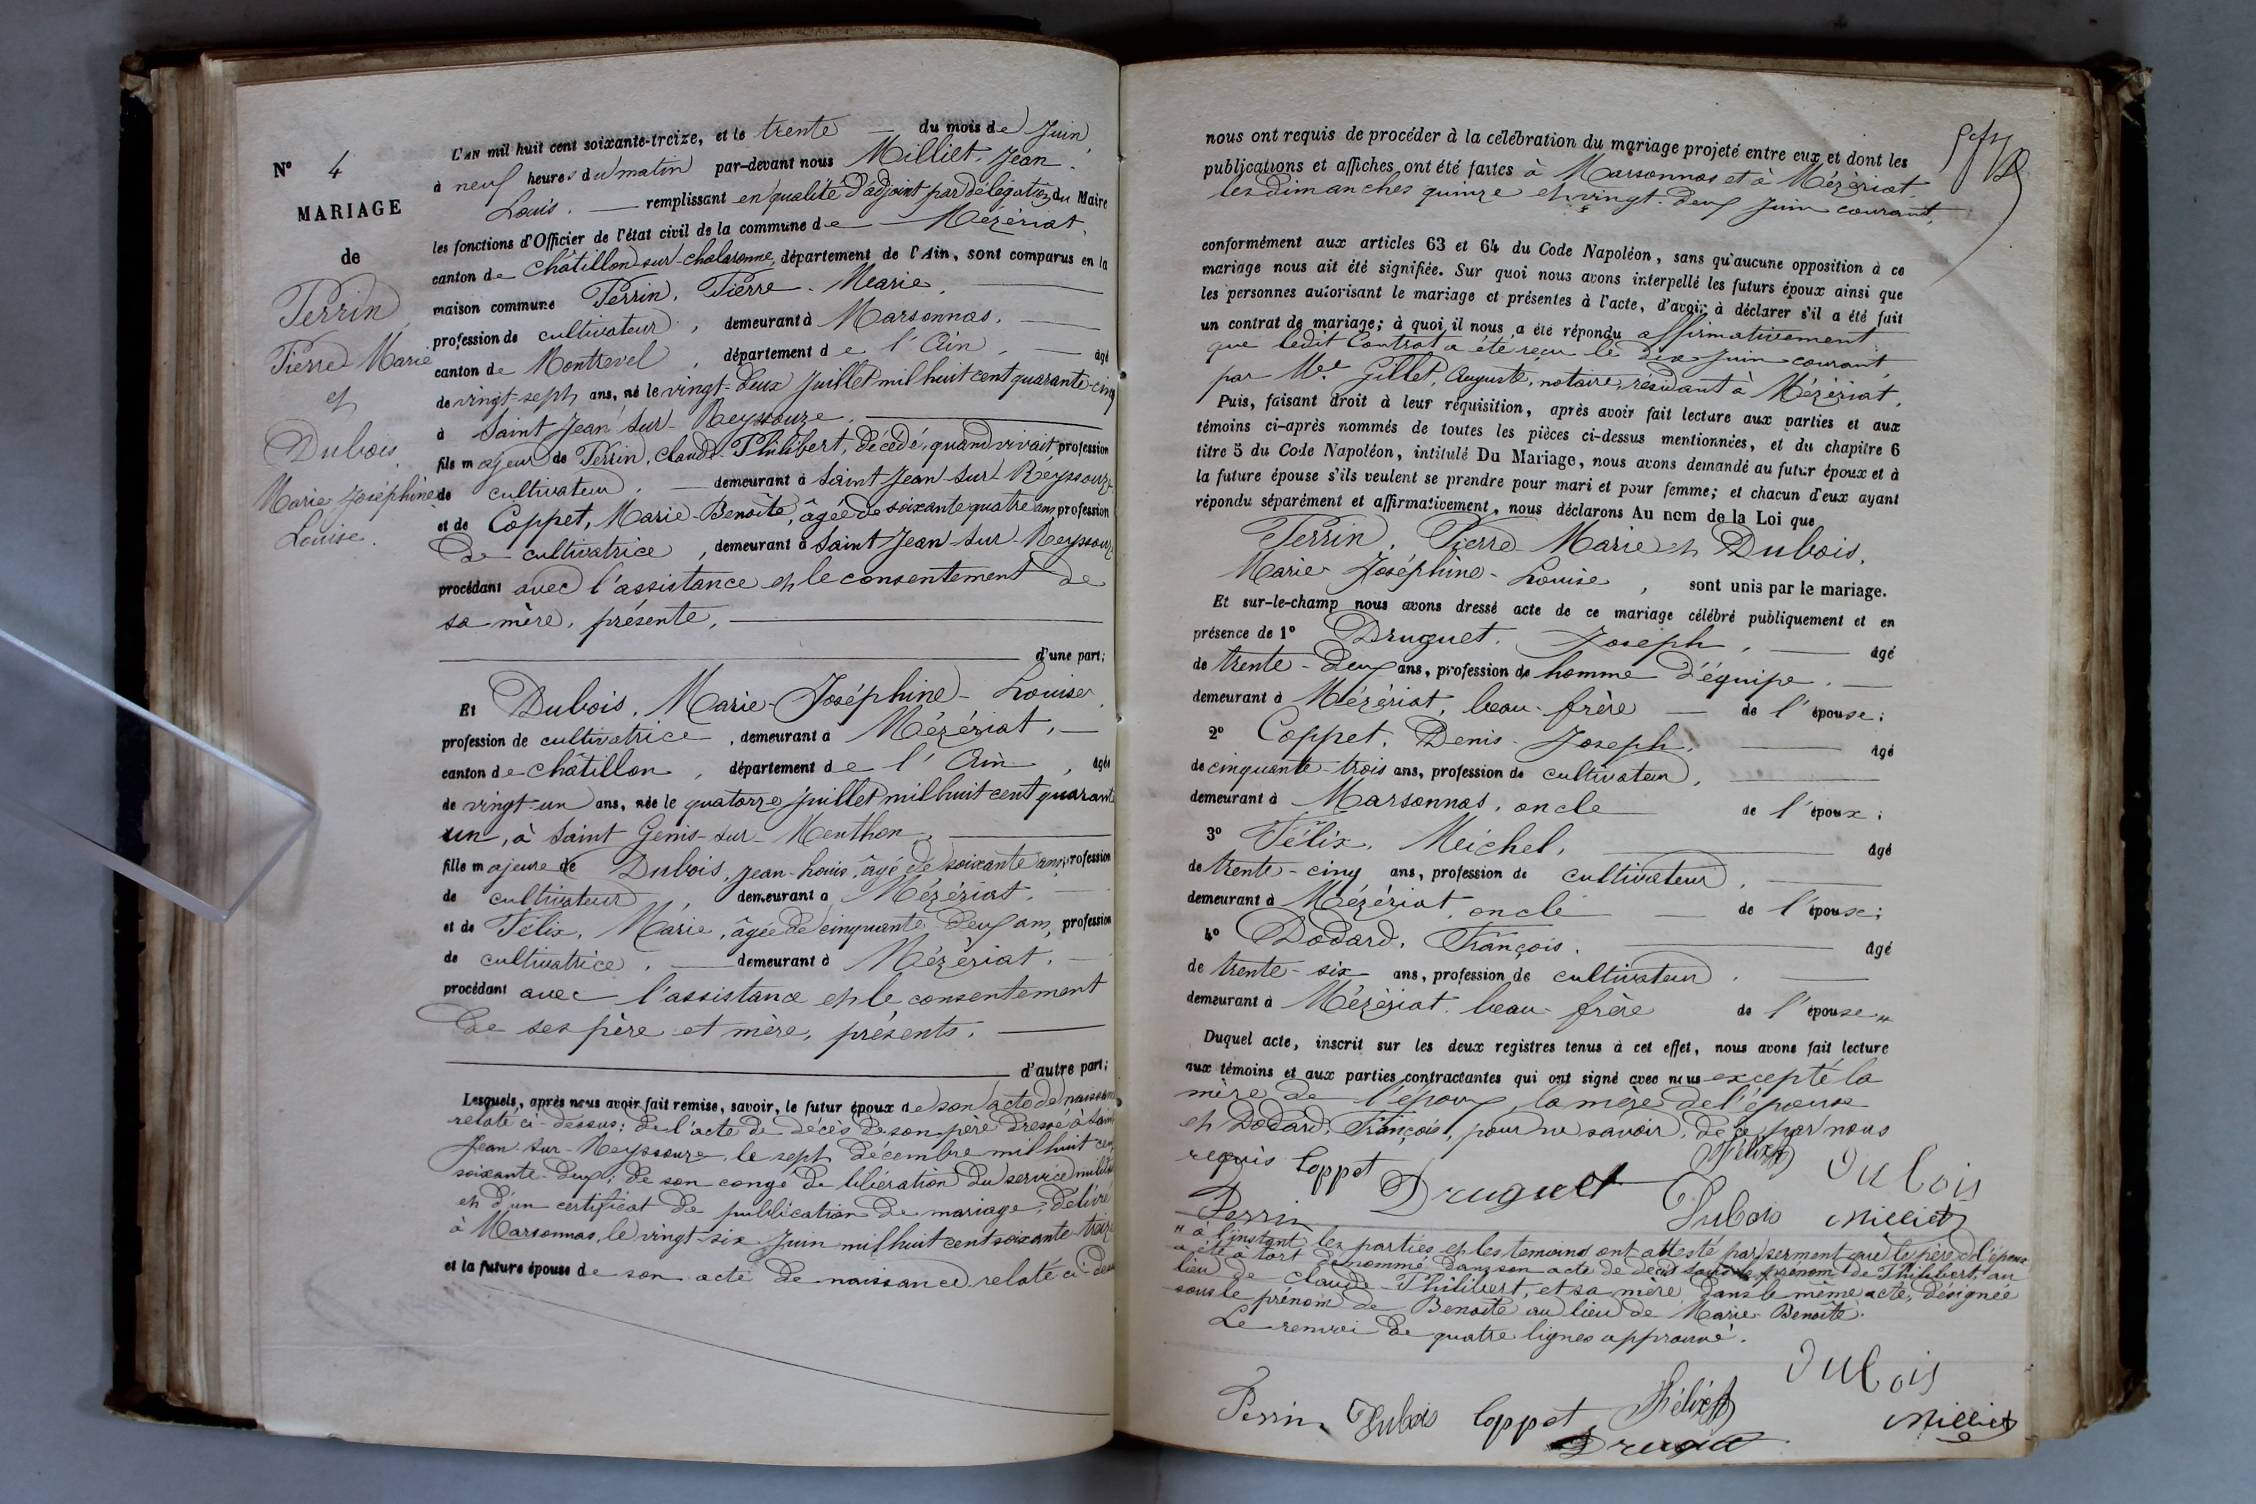 N° 4
MARIAGE
de
Perrin,
Pierre Marie
et
Dubois,
Marie Joséphine
Louise.
L'AN mil huit cent soixante-treize, et le trente du mois de Juin,
à neuf heures du matin par-devant nous Milliet, Jean
Louis. remplissant en qualité d'adjoint par délégation du Maire
les fonctions d'Officier de l'état civil de la commune de Mézériat,
canton de Châtillon-sur-chalaronne, département de l'Ain, sont comparus en la
maison commune Perrin, Pierre-Marie,
profession de cultivateur, demeurant à Marsonnas,
canton de Montrevel, département de l'Ain, âgé
de vingt-sept ans, né le vingt-deux Juillet mil huit cent quarante-cinq
à Saint Jean-sur-Reyssouze,
fils majeur de Perrin, Claude-Philibert, décédé, quand vivait, profession
de cultivateur, demeurant à Saint Jean sur Reyssouze
et de Coppet, Marie-Benoîte, âgée de soixante quatre ans, profession
de cultivatrice, demeurant à Saint-Jean-sur-Reyssouze
procédant avec l'assistance et le consentement de
sa mère, présente,
d'une part;
Et Dubois, Marie-Joséphine-Louise,
profession de cultivatrice, demeurant à Mézériat,
canton de châtillon, département de l'Ain, âgée
de vingt-un ans, née le quatorze Juillet mil huit cent quarante
un, à Saint Genis-sur-Menthon,
fille majeure de Dubois, Jean-Louis, âgé de soixante ans, profession
de cultivateur, demeurant à Mézériat,
et de Félix, Marie, âgée de cinquante deux ans, profession
de cultivatrice, demeurant à Mézériat,
procédant avec l'assistance et le consentement
de ses père et mère, présents,
d'autre part;
Lesquels, après nous avoir fait remise, savoir, le futur époux de son acte de naissance
relaté ci-dessus; de l'acte de décès de son père dressé à Saint
Jean-sur-Reyssouze, le sept décembre mil huit cent
soixante-deux; de son congé de libération du service militaire
et d'un certificat de publication de mariage, délivré
à Marsonnas, le vingt-six Juin mil huit cent soixante-treize
et la future épouse de son acte de naissance relaté ci-dessus
nous ont requis de procéder à la célébration du mariage projeté entre eux et dont les
publications et affiches ont été faites à Marsonnas et à Mézériat,
les dimanches quinze et vingt-deux Juin courant,
conformément aux articles 63 et 64 du Code Napoléon, sans qu'aucune opposition à ce
mariage nous ait été signifiée. Sur quoi nous avons interpellé les futurs époux ainsi que
les personnes autorisant le mariage et présentes à l'acte, d'avoir à déclarer s'il a été fait
un contrat de mariage; à quoi il nous a été répondu affirmativement
que ledit Contrat a été reçu le dix Juin courant,
par Me Gillet, Auguste, notaire, résidant à Mézériat,
Puis, faisant droit à leur réquisition, après avoir fait lecture aux parties et aux
témoins ci-après nommés de toutes les pièces ci-dessus mentionnées, et du chapitre 6
titre 5 du Code Napoléon, intitulé Du Mariage, nous avons demandé au futur époux et à
la future épouse s'ils veulent se prendre pour mari et pour femme; et chacun d'eux ayant
répondu séparément et affirmativement, nous déclarons Au nom de la Loi que
Perrin, Pierre-Marie et Dubois,
Marie-Joséphine-Louise, sont unis par le mariage.
Et sur-le-champ nous avons dressé acte de ce mariage célébré publiquement et en
présence de 1° Druguet, Joseph, âgé
de trente-deux ans, profession de homme d'équipe,
demeurant à Mézériat, beau-frère de l'épouse;
2° Coppet, Denis-Joseph, âgé
de cinquante-trois ans, profession de cultivateur,
demeurant à Marsonnas, oncle de l'époux;
3° Félix, Michel, âgé
de trente-cinq ans, profession de cultivateur,
demeurant à Mézériat, oncle de l'épouse;
4° Dodard, François, âgé
de trente-six ans, profession de cultivateur,
demeurant à Mézériat, beau-frère de l'épouse "
Duquel acte, inscrit sur les deux registres tenus à cet effet, nous avons fait lecture
aux témoins et aux parties contractantes qui ont signé avec nous excepté la
mère de l'époux, la mère de l'épouse
et Dodard, François, pour ne savoir, de ce par nous
requis Coppet Félix Dubois
Druguet Dubois Milliet
Perrin
" à l'instant les parties et les temoins ont attesté par serment que le père de l'époux
a été à tort dénommé dans son acte de décès sous le prénom de Philibert, au
lieu de Claude-Philibert, et sa mère, dans le même acte, désignée
sous le prénom de Benoîte au lieu de Marie-Benoîte.
Le renvoi de quatre lignes approuvé.
Dubois
Perrin Dubois Coppet Félix Milliet
Druguet